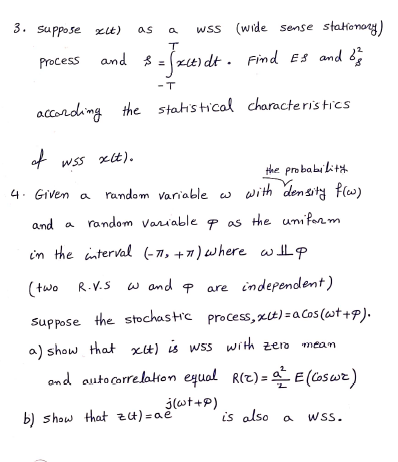 3. Suppose x(t) as a WSS (wide sense stationary)
process and s = ∫_{-T}^{T} x(t) dt. Find Es and σ_s^2
according the statistical characteristics
of WSS x(t).
4. Given a random variable ω with the probability density f(ω)
and a random variable φ as the uniform
in the interval (-π, +π) where ω ⫫ φ
(two R.V.S ω and φ are independent)
Suppose the stochastic process, x(t) = a Cos(ωt+φ).
a) show that x(t) is WSS with zero mean
and autocorrelation equal R(τ) = a^2/2 E(Cos ωτ)
b) show that z(t) = ae^{j(ωt+φ)} is also a WSS.